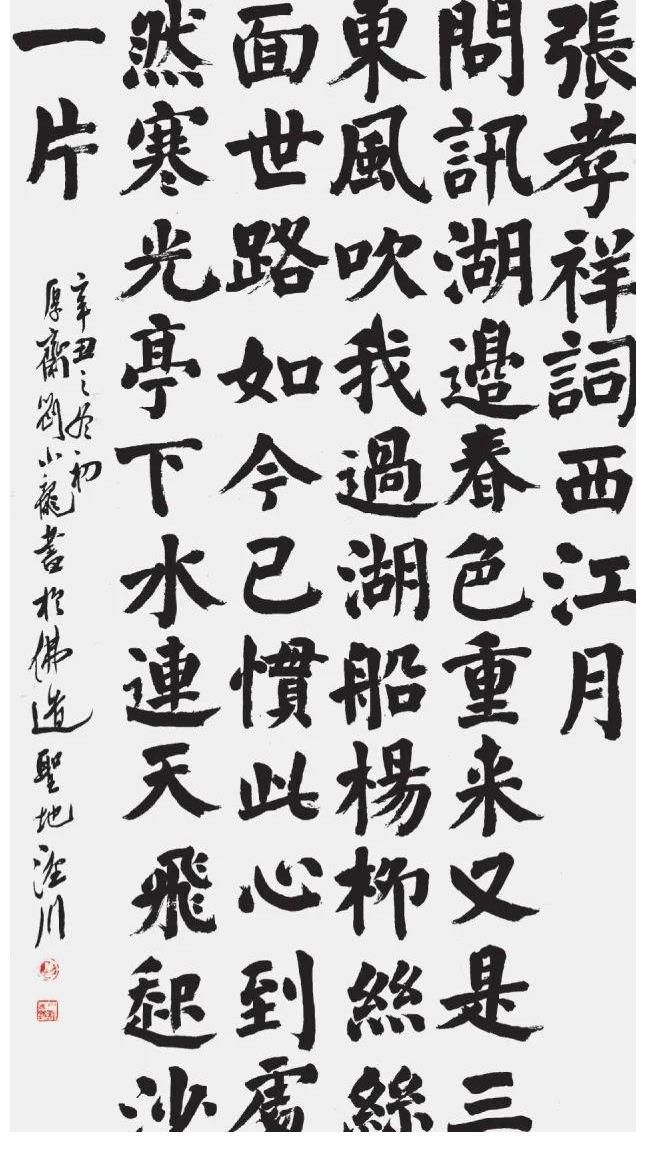 張孝祥詞西江月
問訊湖邊春色重来又是三
東風吹我過湖船楊柳絲絲
面世路如今已慣此心到處
然寒光亭下水連天飛起沙
一片
辛丑之冬初
厚齋劉小龍書於佛道聖地涇川